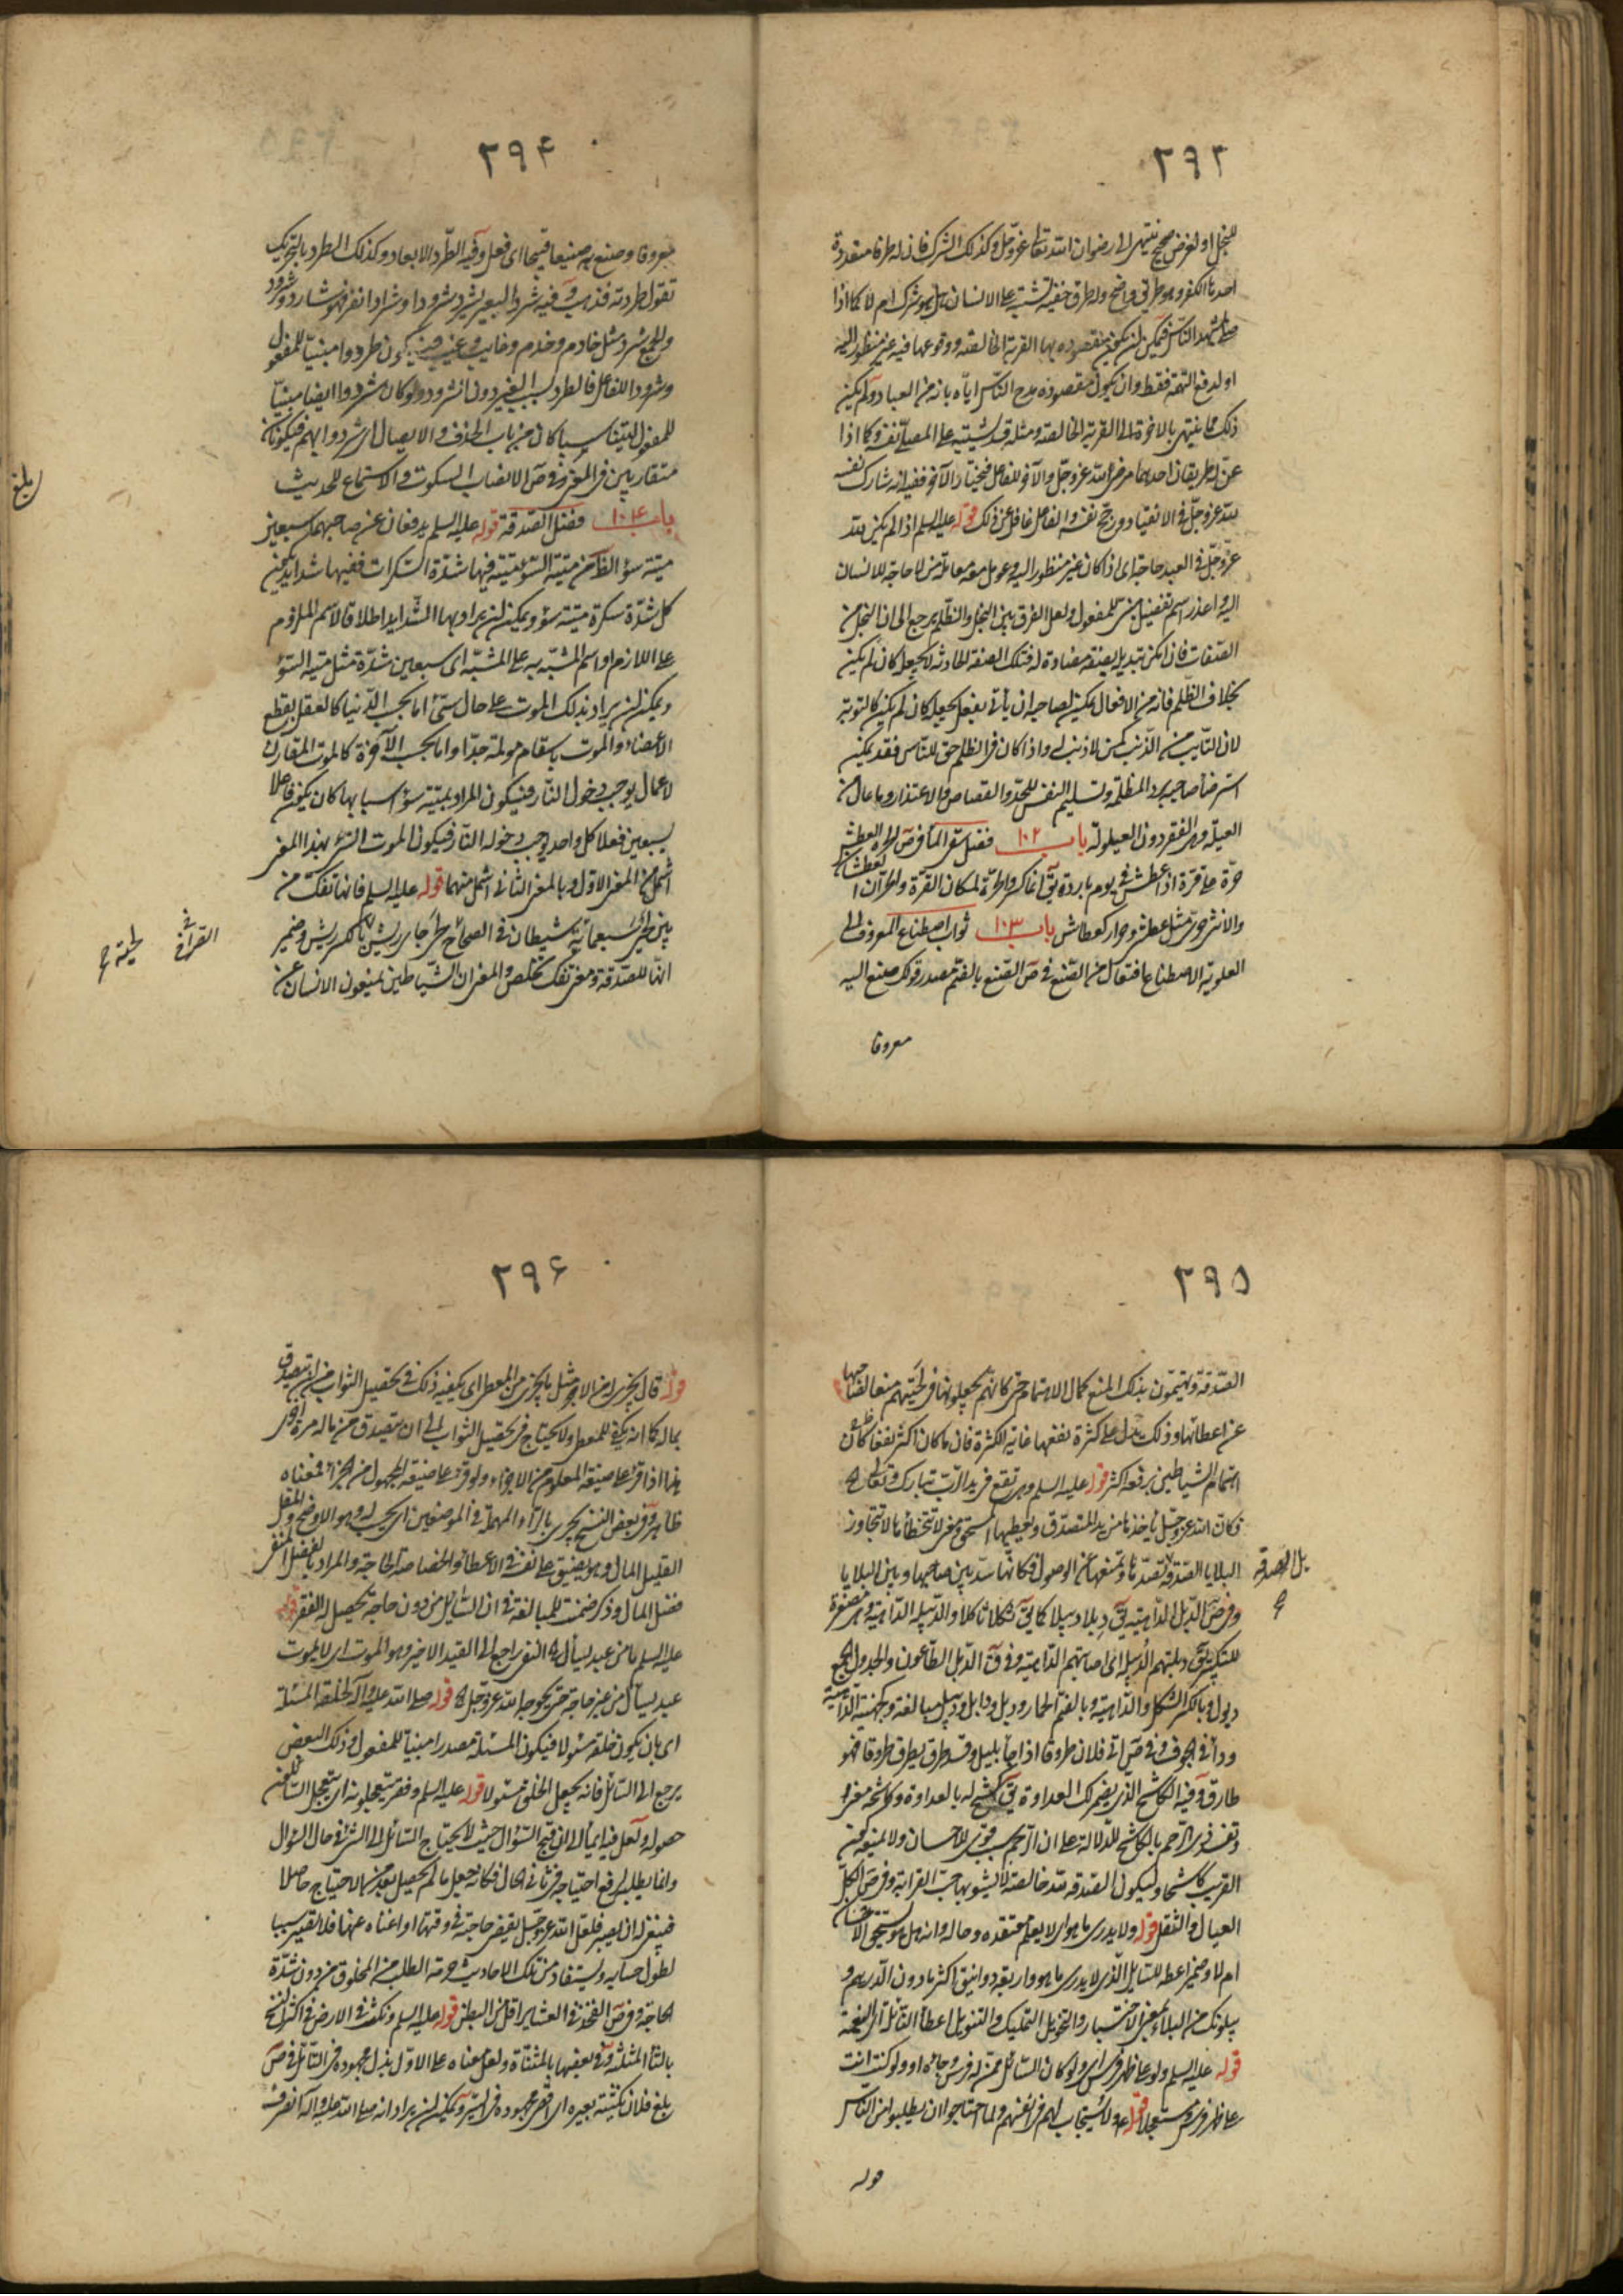 ٢٩٣
للبخل او لغرض صحيح ينتهى الى رضوان الله تعالى عزّ وجلّ وكذلك الشرك فان له طرقا متعددة
احدها الكفر وهو طريق واضح وله طرق خفية تشتبه على الانسان هل هو شرك ام لا كما اذا
صلى بمشهد الناس فيمكن ان يكون مقصوده بها القربة الخالصة ووقوعها فيه غير منظور اليه
او لدفع التهمة فقط وان يكون مقصوده مدح الناس اياه بانه من العباد ولم يكن
ذلك مما ينتهى بالاخرة الى القربة الخالصة ومثله قد يشتبه على المصلى نفسه وكما اذا
عنّ له طريقان احدهما مرضى لله عز وجلّ والآخر للفاعل فيختار الآخر ففيه انه شارك نفسه
لله عز وجلّ فى الانقياد ورجح نفسه والفاعل غافل عن ذلك قوله عليه السلم اذا لم يكن لله
عزّ وجلّ فى العبد حاجة اى اذا كان غير منظور اليه وعومل معه معاملة من لا حاجة للانسان
اليه واعذر اسم تفضيل بمعنى للمفعول ولعل الفرق بين البخل والظلم يرجع الى ان البخل من
الصفات فان امكن تبديل بصفة مضادة له فتلك الصفة الحادثة لا يجعله كان لم يكن
بخلاف الظلم فانه من الافعال يمكن لصاحبه ان يأتى بفعل يجعله كان لم يكن كالتوبة
لان التايب من الذنب كمن لا ذنب له واذا كان فى الظلم حق للناس فقد يمكن
استرضاء صاحبه برد المظلمة وتسليم النفس للحد والقصاص والاعتذار وما عال من
العيلة وهى الفقر دون العيلولة باب ١٠٢ فضل سقى الماء فى ص الحرّه العطش
حرّة على قرّة اذا عطش فى يوم بارد ويق انما كسروا الحرّة لمكان القرّة والحرّان العطشان
والانثى حرّى مثل عطشى وحرار كعطاش باب ١٠٣ ثواب اصطناع المعروف الى
العلوية الاصطناع افتعال من الصنع فى ص الصنع بالضم مصدر قولك صنع اليه
معروفا
٢٩۴
معروفا وصنع به صنيعا قبيحا اى فعل وفيه الطّرد الابعاد وكذلك الطرد بالتحريك
تقول طردته فذهب وفيه شرد البعير يشرد شرودا وشرادا نفر فهو شارد وشرود
والجمع شرد مثل خادم وخدم وغايب وغيب فيكون طردوا مبنيا للمفعول
وشردوا للفاعل فالطرد بسبب الغير دون الشرود ولو كان شردوا ايضا مبنيّا
للمفعول لبيتنا سبا كان من باب الحذف والايصال اى شردوا بهم فيكونان
متقاربين فى المعنى وفى ص الانصات السكوت والاستماع للحديث
باب ١٠۴ فضل الصدقة قوله عليه السلم يدفعان عن صاحبهما سبعين
ميتة سوء الظاهر من ميتة السوء ميتة فيها شدّة السكرات ففيها شدايد يمكن
كل شدّة سكرة ميتة سوء ويمكن ان يراد بها الشدايد اطلاقا لاسم الملزوم
على اللازم او اسم المشبّه به على المشبّه اى سبعين شدّة مثل ميتة السوء
ويمكن ان يراد بذلك الموت على حال سيّئ اما بحسب الدّنيا كالعقل بقطع
الاعضاء والموت باسقام مولمة جدّا واما بحسب الآخرة كالموت المقارن
لاعمال يوجب دخول النار فيكون المراد بميتة سوء اسبابها كان يكون فاعلا
لسبعين فعلا كل واحد يوجب دخوله النار فيكون الموت السوء بهذا المعنى
اشمل من المعنى الاول وبالمعنى الثانى اشمل منهما قوله عليه السلم فانها تفك من
بين لحيى سبعمائة شيطان فى الصحاح
انّها للصدقة ومعنى تفك تخلص والمعنى ان الشياطين يمنعون الانسان عن
بلغ
القرآن
٢٩۵
الصّدقة ويهتمّون بذلك المنع كمال الاهتمام حتى كانهم يجعلونها فى لحييهم منعا لصاحبها
عن اعطائها وذلك يدل على كثرة نفعها غاية الكثرة فان ما كان اكثر نفعا كان
اهتمام الشياطين برفعه اكثر قوله عليه السلم وهى تقع فى يد الربّ تبارك وتعالى اه
فكان الله عز وجلّ يأخذها من يد المتصدّق ويعطيها المستحق ومعنى لا تتخطاها لا تتجاوز
البلايا الصدقة تصدّها وتمنعها عن الوصول فكانها سدّ بين صاحبها وبين البلايا
وفى ص الدّبل الداهية يق دبلا دبيلا كما يق ثكلا ثاكلا والدبيلة الداهية وهى مصغرة
للتكبير يق دبلتهم الدبيلة اى اصابتهم الداهية وفى ق الدبل الطاعون والجدول ج
دبول وبالكسر الثكل والداهية وبالضم الحمار ودبل ودابل ودبيل مبالغة وكجهينة الداهية
وداء فى الجوف وفى ص اتى فلان طروقا اذا جاء بليل وقد طرق يطرق طروقا فهو
طارق وفيه الكاشح الذى يضمر لك العداوة يق كشح له بالعداوة وكاشحه بمعنى
وتقييد ذى الرحم بالكاشح للدلالة على ان الرحم سبب قوى للاحسان ولا يمنعه كون
القريب كاشحا وليكون الصدقة لله خالصة لا يشوبها حبّ القرابة وفى ص الكلّ
العيال والثقل قوله ولا يدرى ما هو اى لا يعلم معتقده وحاله وانه هل هو يستحق الاحسان
ام لا وضمير اعطه للسايل الذى لا يدرى ما هو واربعة دوانيق اكثرها دون الدرهم و
يبلونك من البلاء بمعنى الاختبار والتخويل التمليك والتنويل اعطاء النايل اى النعمة
قوله عليه السلم ولو على ظهر فرس اى ولو كان السائل ممن له فرس وجاءه او ولو كنت انت
على ظهر فرس مستعجلا قوله ولا يستجاب لهم فى انفسهم ولما احتاجوا ان يطلبوا من الناس
بل الصدقة
قوله
٢٩۶
قوله قال يجزى اى من الاجر مثل ما يجزى من المعطى اى يكفيه ذلك فى تحصيل الثواب من ان يتصدق
بماله كما انه يكفى للمعطى ولا يحتاج فى تحصيل الثواب الى ان يتصدق من ماله مرة اخرى
هذا اذا قرئ على صيغة المعلوم من الاجزاء ولو قرئ على صيغة المجهول من الجزاء فمعناه
ظاهر وفى بعض النسخ يجرى بالراء المهملة فى الموضعين اى يجب له وهو الاوضح والمقل
القليل المال وجهد يضيق على نفسه فى الاعطاء والخصاصة الحاجة والمراد بالفضل الغنى
فضل المال وذكر ضمنت للمبالغة فى ان السائل من دون حاجة يحصل له الفقر قوله
عليه السلم ما من عبد يسأل اه النفى راجع الى القيد الاخير وهو الموت اى لا يموت
عبد يسأل من غير حاجة حتى يحوجه الله عز وجلّ اه قوله صلى الله عليه وآله لخلقه المسئلة
اى بان يكون خلقه مسئولا فيكون المسئلة مصدرا مبنيا للمفعول وذلك البغض
يرجع الى السائل فانه يجعل الخلق مسئولا قوله عليه السلم وفقر يتعجلونه اى يستعجل السائلون
حصوله ولعل فيه ايماء الى ان قبح السؤال حيث لا يحتاج السائل الى الشئ فى حال السؤال
وانما يطلب لرفع احتياجه فى ثانى الحال فكانه جعل ما لم يحصل بعد من الاحتياج حاصلا
فينبغى له ان يصبر فلعل الله عز وجل يقضى حاجته فى وقتها او اغناه عنها فلا يصير سببا
لطول حسابه ويستفاد من تلك الاحاديث حرمة الطلب من المخلوق من دون شدّة
الحاجة وفى ص الفخذ فى العشاير اقل من البطن قوله عليه السلم ونكث فى الارض فى اكثر النسخ
بالثاء المثلثة وفى بعضها بالمثناة ولعل معناه على الاول بذل مجهوده فى التأمل فى ص
بلغ فلان نكيثة بعيره اى اقصى مجهوده فى السير ويمكن ان يراد انه صلى الله عليه وآله انصرف